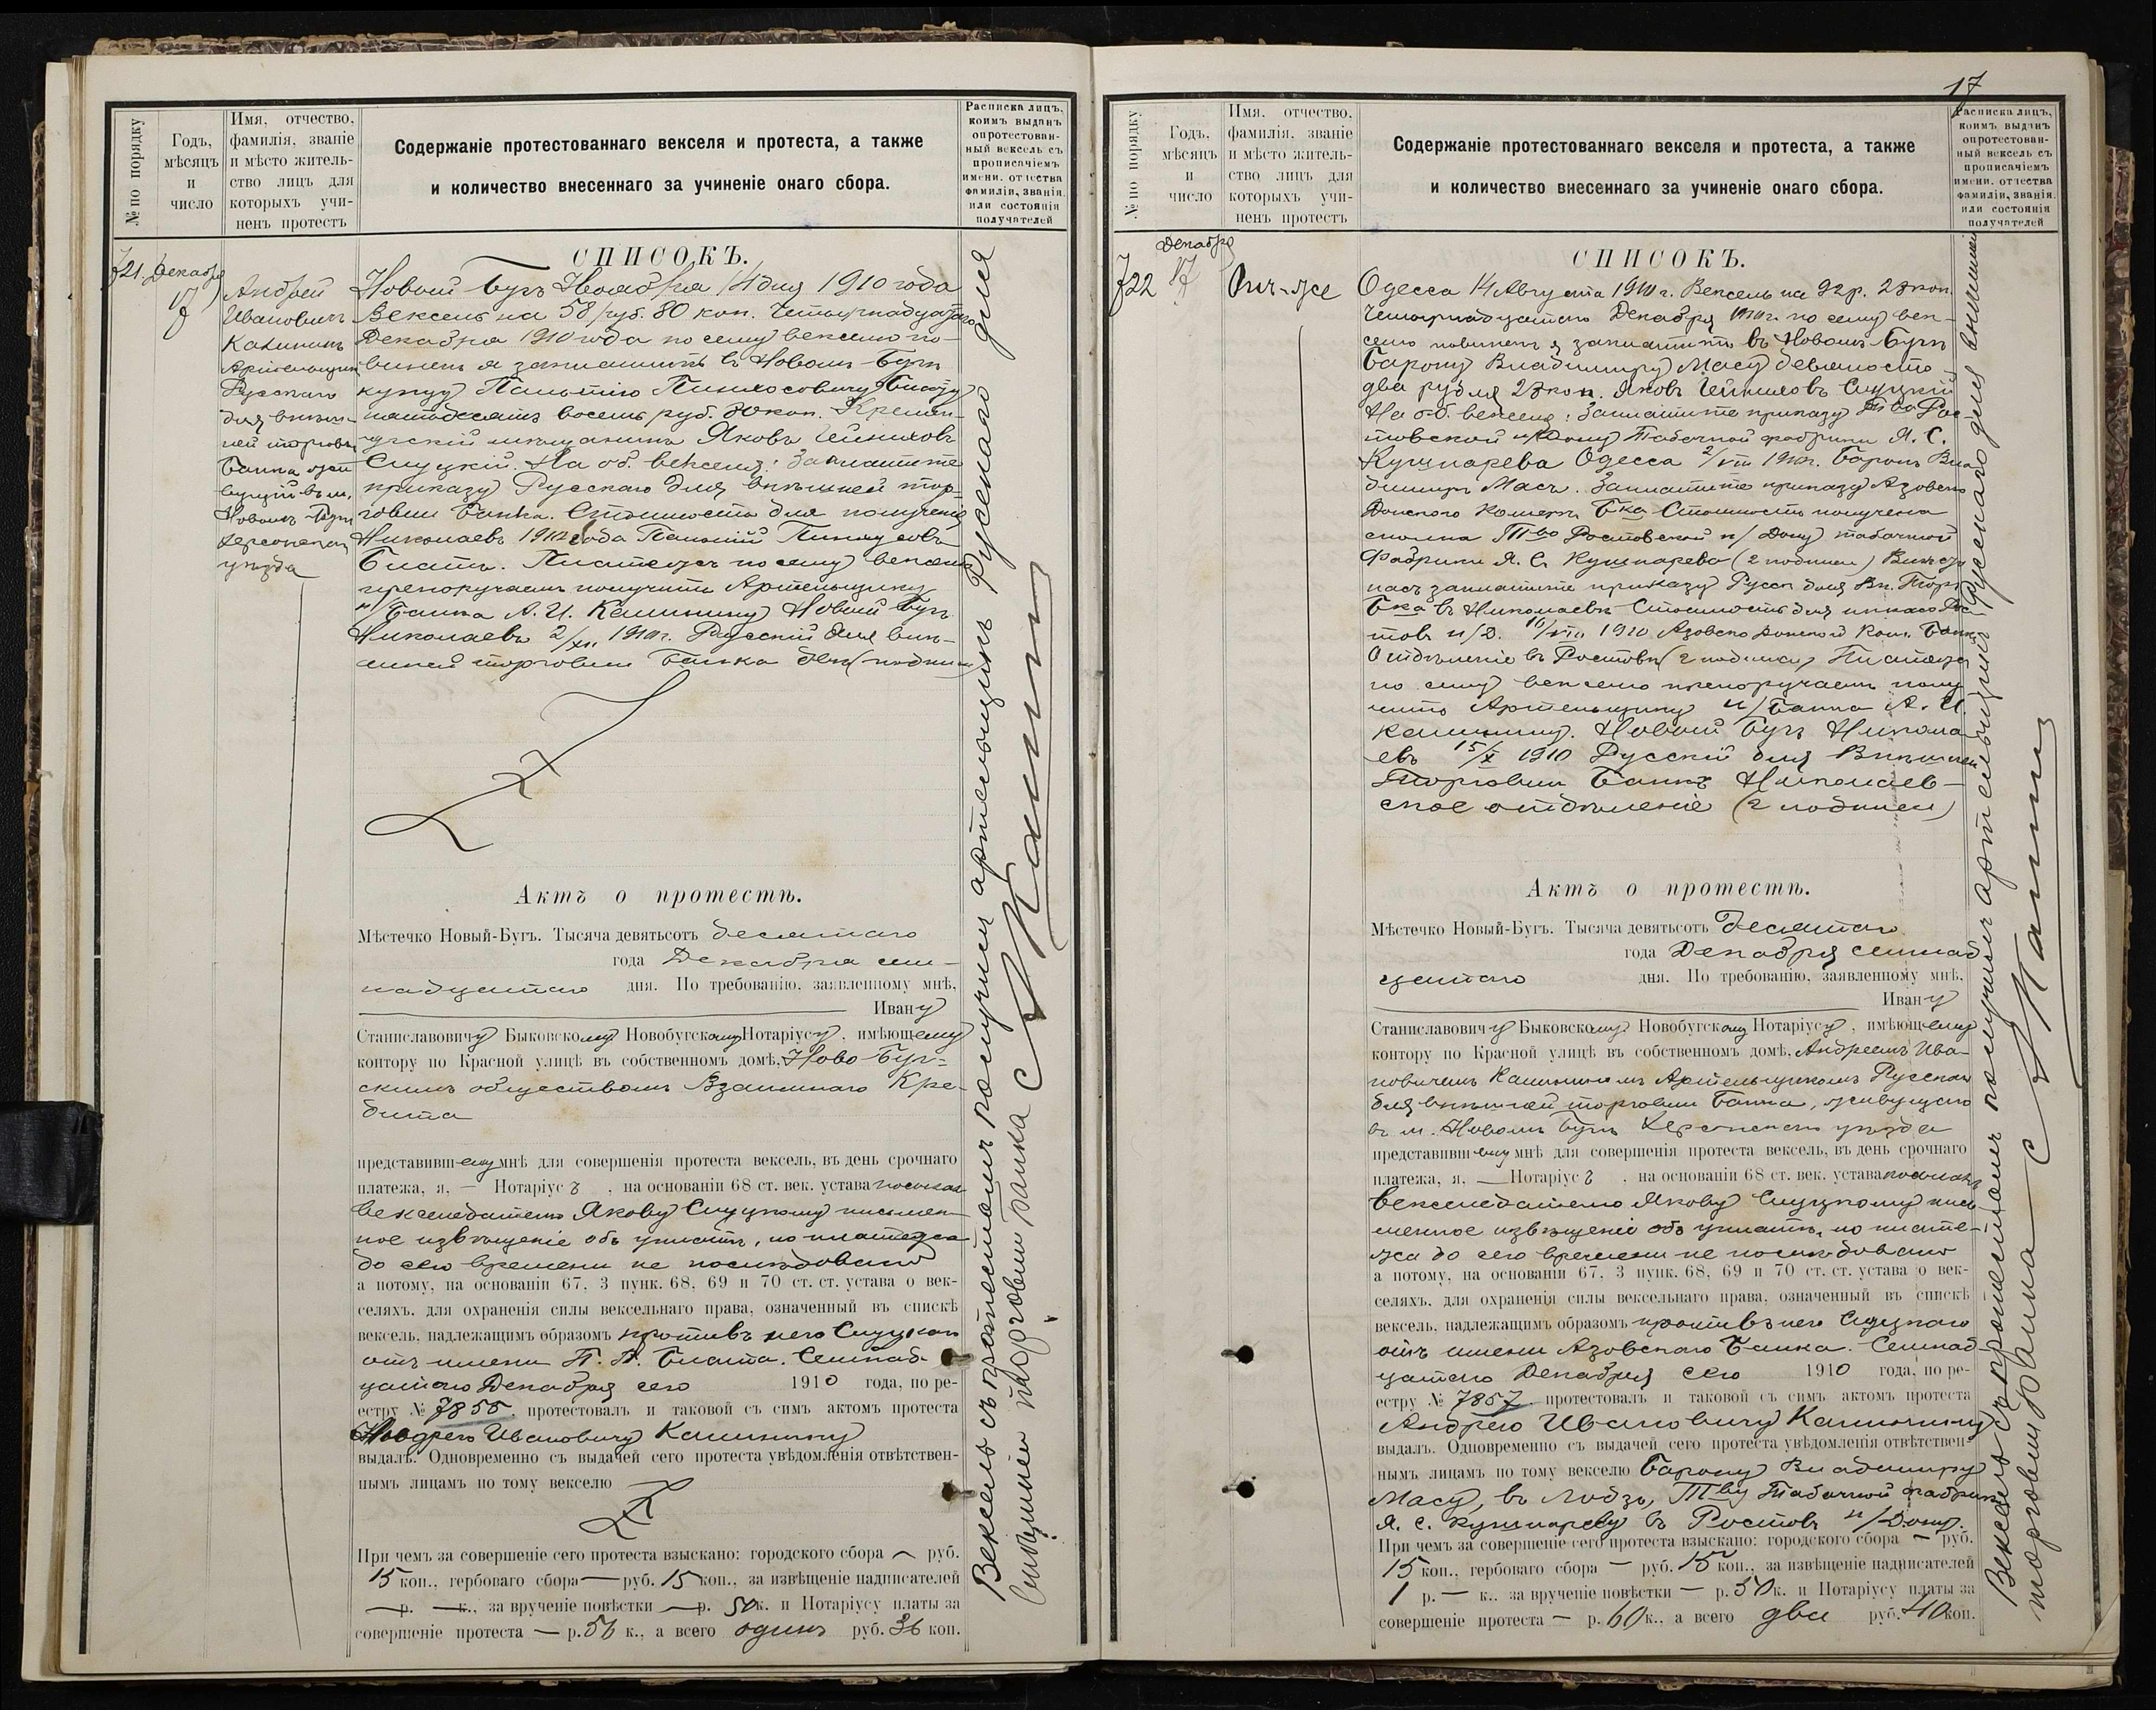 № по порядку
Годъ,
мѣсяцъ
и
число
Имя, отчество,
фамилія, званіе
и мѣсто житель-
ство лицъ для
которыхъ учи-
ненъ протестъ
Содержаніе протестованнаго векселя и протеста, а также
и количество внесеннаго за учиненіе онаго сбора.
Расписка лицъ,
коимъ выданъ
опротестован-
ный вексель съ
прописаніемъ
имени, отчества
фамиліи, званія,
или состоянія
получателей
721. Декабря
17
Андрей
Ивановичъ
Калининъ
Артельщикъ
Русскаго
для внѣш-
ней торговли
Банка жи-
вущій въ м.
Новомъ-Бугѣ
Херсонскаго
уѣзда
СПИСОКЪ.
Новый Бугъ Ноября 14 дня 1910 года
Вексель на 58 руб. 80 коп. Четырнадцатаго
Декабря 1910 года по сему векселю по-
виненъ я заплатить въ Новомъ-Бугѣ
купцу Пальтію Пинхосовичу Біяту
пятьдесятъ восемь руб. 80 коп. Кремен-
чугскій мѣщанинъ Яковъ Чейниховъ
Слуцкій. На об. векселя: Заплатите
приказу Русскаго для внѣшней тор-
говли Банка. Стоимость для полученія
Николаевъ 1910 года Пальтій Пинхусовъ
Біятъ. Платежъ по сему векселю
препоручаемъ получить Артельщику
н/ Банка А. И. Калинину Новый Бугъ
Николаевъ 2/XII 1910 г. Русскій для внѣ-
шней торговли Банка (подписи)
Актъ о протестѣ.
Мѣстечко Новый-Бугъ. Тысяча девятьсотъ десятаго
года Декабря сем-
надцатаго дня. По требованію, заявленному мнѣ,
Ивану
Станиславовичу Быковскому Новобугскому Нотаріусу, имѣющему
контору по Красной улицѣ въ собственномъ домѣ, Ново-Буг-
скимъ обществомъ Взаимнаго Кре-
дита
представившему мнѣ для совершенія протеста вексель, въ день срочнаго
платежа, я, — Нотаріусъ, на основаніи 68 ст. век. устава посылалъ
векселедателю Якову Слуцкому письмен-
ное извѣщеніе объ уплатѣ, но платежа
до сего времени не послѣдовало
а потому, на основаніи 67, 3 пунк. 68, 69 и 70 ст. ст. устава о век-
селяхъ, для охраненія силы вексельнаго права, означенный въ спискѣ
вексель, надлежащимъ образомъ противъ него Слуцкаго
отъ имени П. П. Біята. Семнад-
цатаго Декабря сего 1910 года, по ре-
естру № 7855, протестовалъ и таковой съ симъ актомъ протеста
Андрею Ивановичу Калинину
выдалъ. Одновременно съ выдачей сего протеста увѣдомленія отвѣтствен-
нымъ лицамъ по тому векселю
При чемъ за совершеніе сего протеста взыскано: городского сбора — руб.
15 коп., гербоваго сбора — руб. 15 коп., за извѣщеніе надписателей
— р. — к., за врученіе повѣстки — р. 50 к. и Нотаріусу платы за
совершеніе протеста — р. 56 к., а всего одинъ руб. 36 коп.
Вексель съ протестомъ получилъ артельщикъ Русскаго для
внѣшней торговли банка А Калинин
17
№ по порядку
Годъ,
мѣсяцъ
и
число
Имя, отчество,
фамилія, званіе
и мѣсто житель-
ство лицъ для
которыхъ учи-
ненъ протестъ
Содержаніе протестованнаго векселя и протеста, а также
и количество внесеннаго за учиненіе онаго сбора.
Расписка лицъ,
коимъ выданъ
опротестован-
ный вексель съ
прописаніемъ
имени, отчества
фамиліи, званія,
или состоянія
получателей
Декабря
722 17
Онъ-же
СПИСОКЪ.
Одесса 14 Августа 1910 г. Вексель на 92 р. 27 коп.
Четырнадцатаго Декабря 1910 г. по сему век-
селю повиненъ я заплатить въ Новомъ Бугѣ
Барону Владимиру Масу девяносто
два рубля 27 коп. Яковъ Чейниховъ Слуцкій
На об. векселя: Заплатите приказу Т-ва Рос-
товской н/Дону Табачной фабрики Я. С.
Кушнарева Одесса 2/VIII 1910 г. Баронъ Вла-
димиръ Масъ. Заплатите приказу Азовско
Донского Комерч. Бка Стоимость получена
сполна Тво Ростовской н/ Дону табачной
Фабрики Я. С. Кушнарева (2 подписи) Вмѣсто
насъ заплатите приказу Русск. для Вн. Торг.
Бка въ Николаевѣ Стоимость для инкассо Рос-
товъ н/Д. 16/VIII 1910 Азовско Донской Ком. Банкъ
Отдѣленіе въ Ростовѣ (2 подписи) Платежъ
по сему векселю препоручаемъ полу-
чить Артельщику н/ Банка А. И.
Калинину. Новый Бугъ Никола-
евъ 15/X 1910 Русскій для Внѣшней
Торговли Банкъ Николаев-
ское отдѣленіе (2 подписи)
Актъ о протестѣ.
Мѣстечко Новый-Бугъ. Тысяча девятьсотъ Десятаго
года Декабря семнад-
цатаго дня. По требованію, заявленному мнѣ,
Ивану
Станиславовичу Быковскому Новобугскому Нотаріусу, имѣющему
контору по Красной улицѣ въ собственномъ домѣ, Андреемъ Ива-
новичемъ Калининымъ Артельщикомъ Русскаго
для внѣшней торговли Банка, живущаго
въ м. Новомъ Бугѣ Херсонскаго уѣзда
представившему мнѣ для совершенія протеста вексель, въ день срочнаго
платежа, я, — Нотаріусъ, на основаніи 68 ст. век. устава посылалъ
векселедателю Якову Слуцкому пись-
менное извѣщеніе объ уплатѣ, но плате-
жа до сего времени не послѣдовало
а потому, на основаніи 67, 3 пунк. 68, 69 и 70 ст. ст. устава о век-
селяхъ, для охраненія силы вексельнаго права, означенный въ спискѣ
вексель, надлежащимъ образомъ противъ него Слуцкаго
отъ имени Азовскаго Банка. Семнад-
цатаго Декабря сего 1910 года, по ре-
естру № 7857 протестовалъ и таковой съ симъ актомъ протеста
Андрею Ивановичу Калинину
выдалъ. Одновременно съ выдачей сего протеста увѣдомленія отвѣтствен-
нымъ лицамъ по тому векселю Барону Владимиру
Масу, въ Лодзь, Тву Табачной фабрики
Я. С. Кушнареву въ Ростовъ н/Дону.
При чемъ за совершеніе сего протеста взыскано: городского сбора — руб.
15 коп., гербоваго сбора — руб. 15 коп., за извѣщеніе надписателей
1 р. — к., за врученіе повѣстки — р. 50 к. и Нотаріусу платы за
совершеніе протеста — р. 60 к., а всего два руб. 40 коп.
Вексель съ протестомъ получилъ артельщикъ Русскаго для внѣшней
торговли банка А Калинин